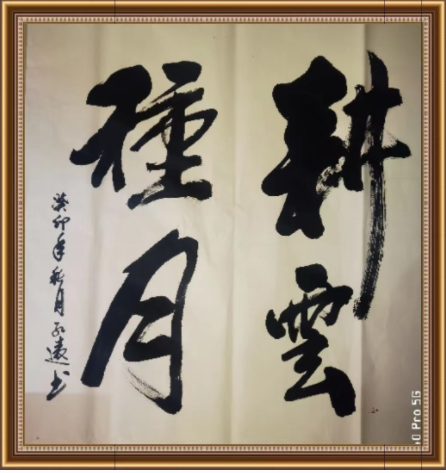 耕雲
種月
癸卯年秋月永遠书
0 Pro 5G